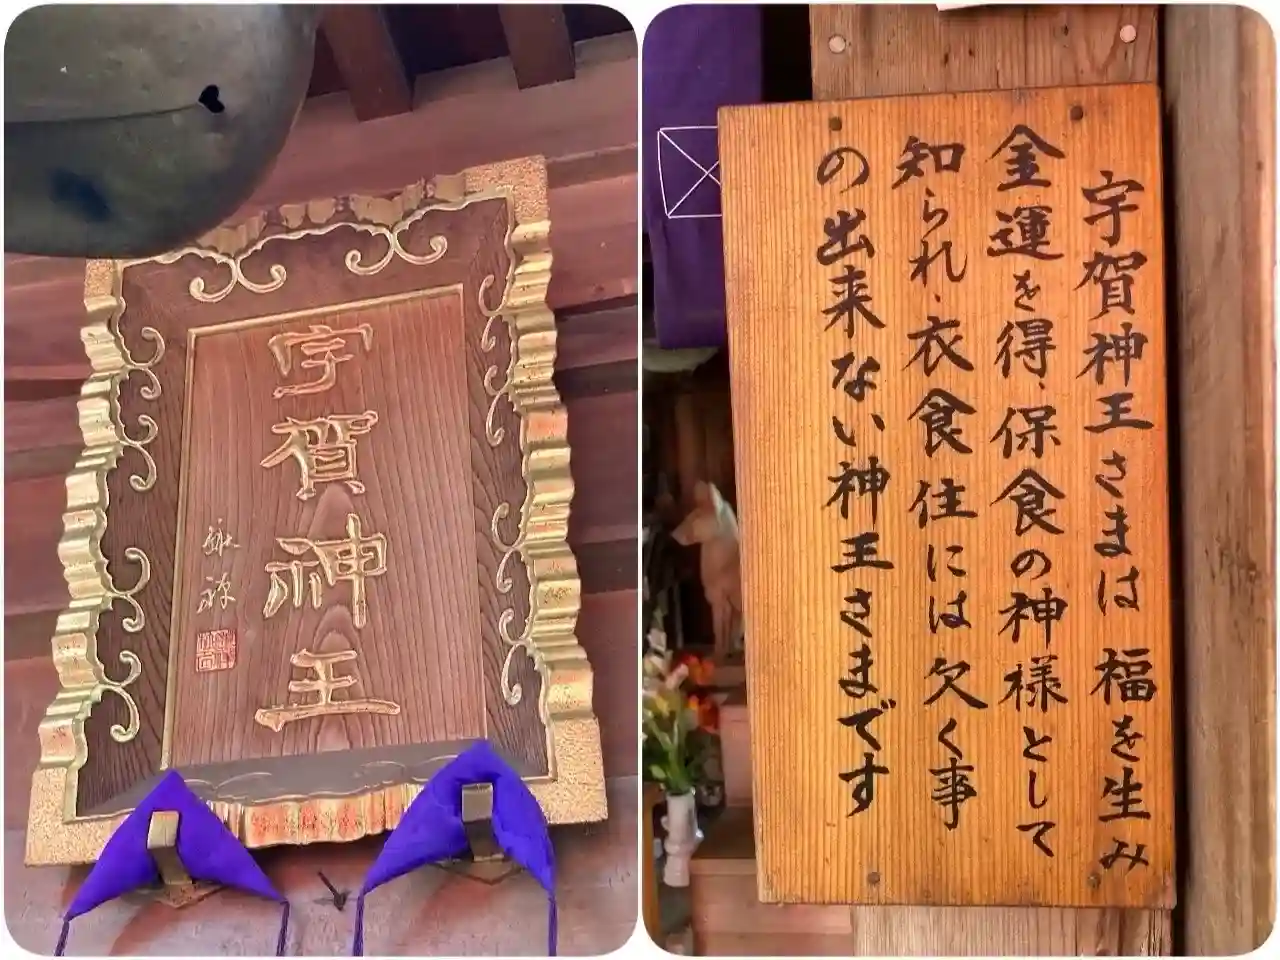 宇賀神王
宇賀神王さまは 福を生み
金運を得、保食の神様として
知られ、衣食住には欠く事
の出来ない神王さまです